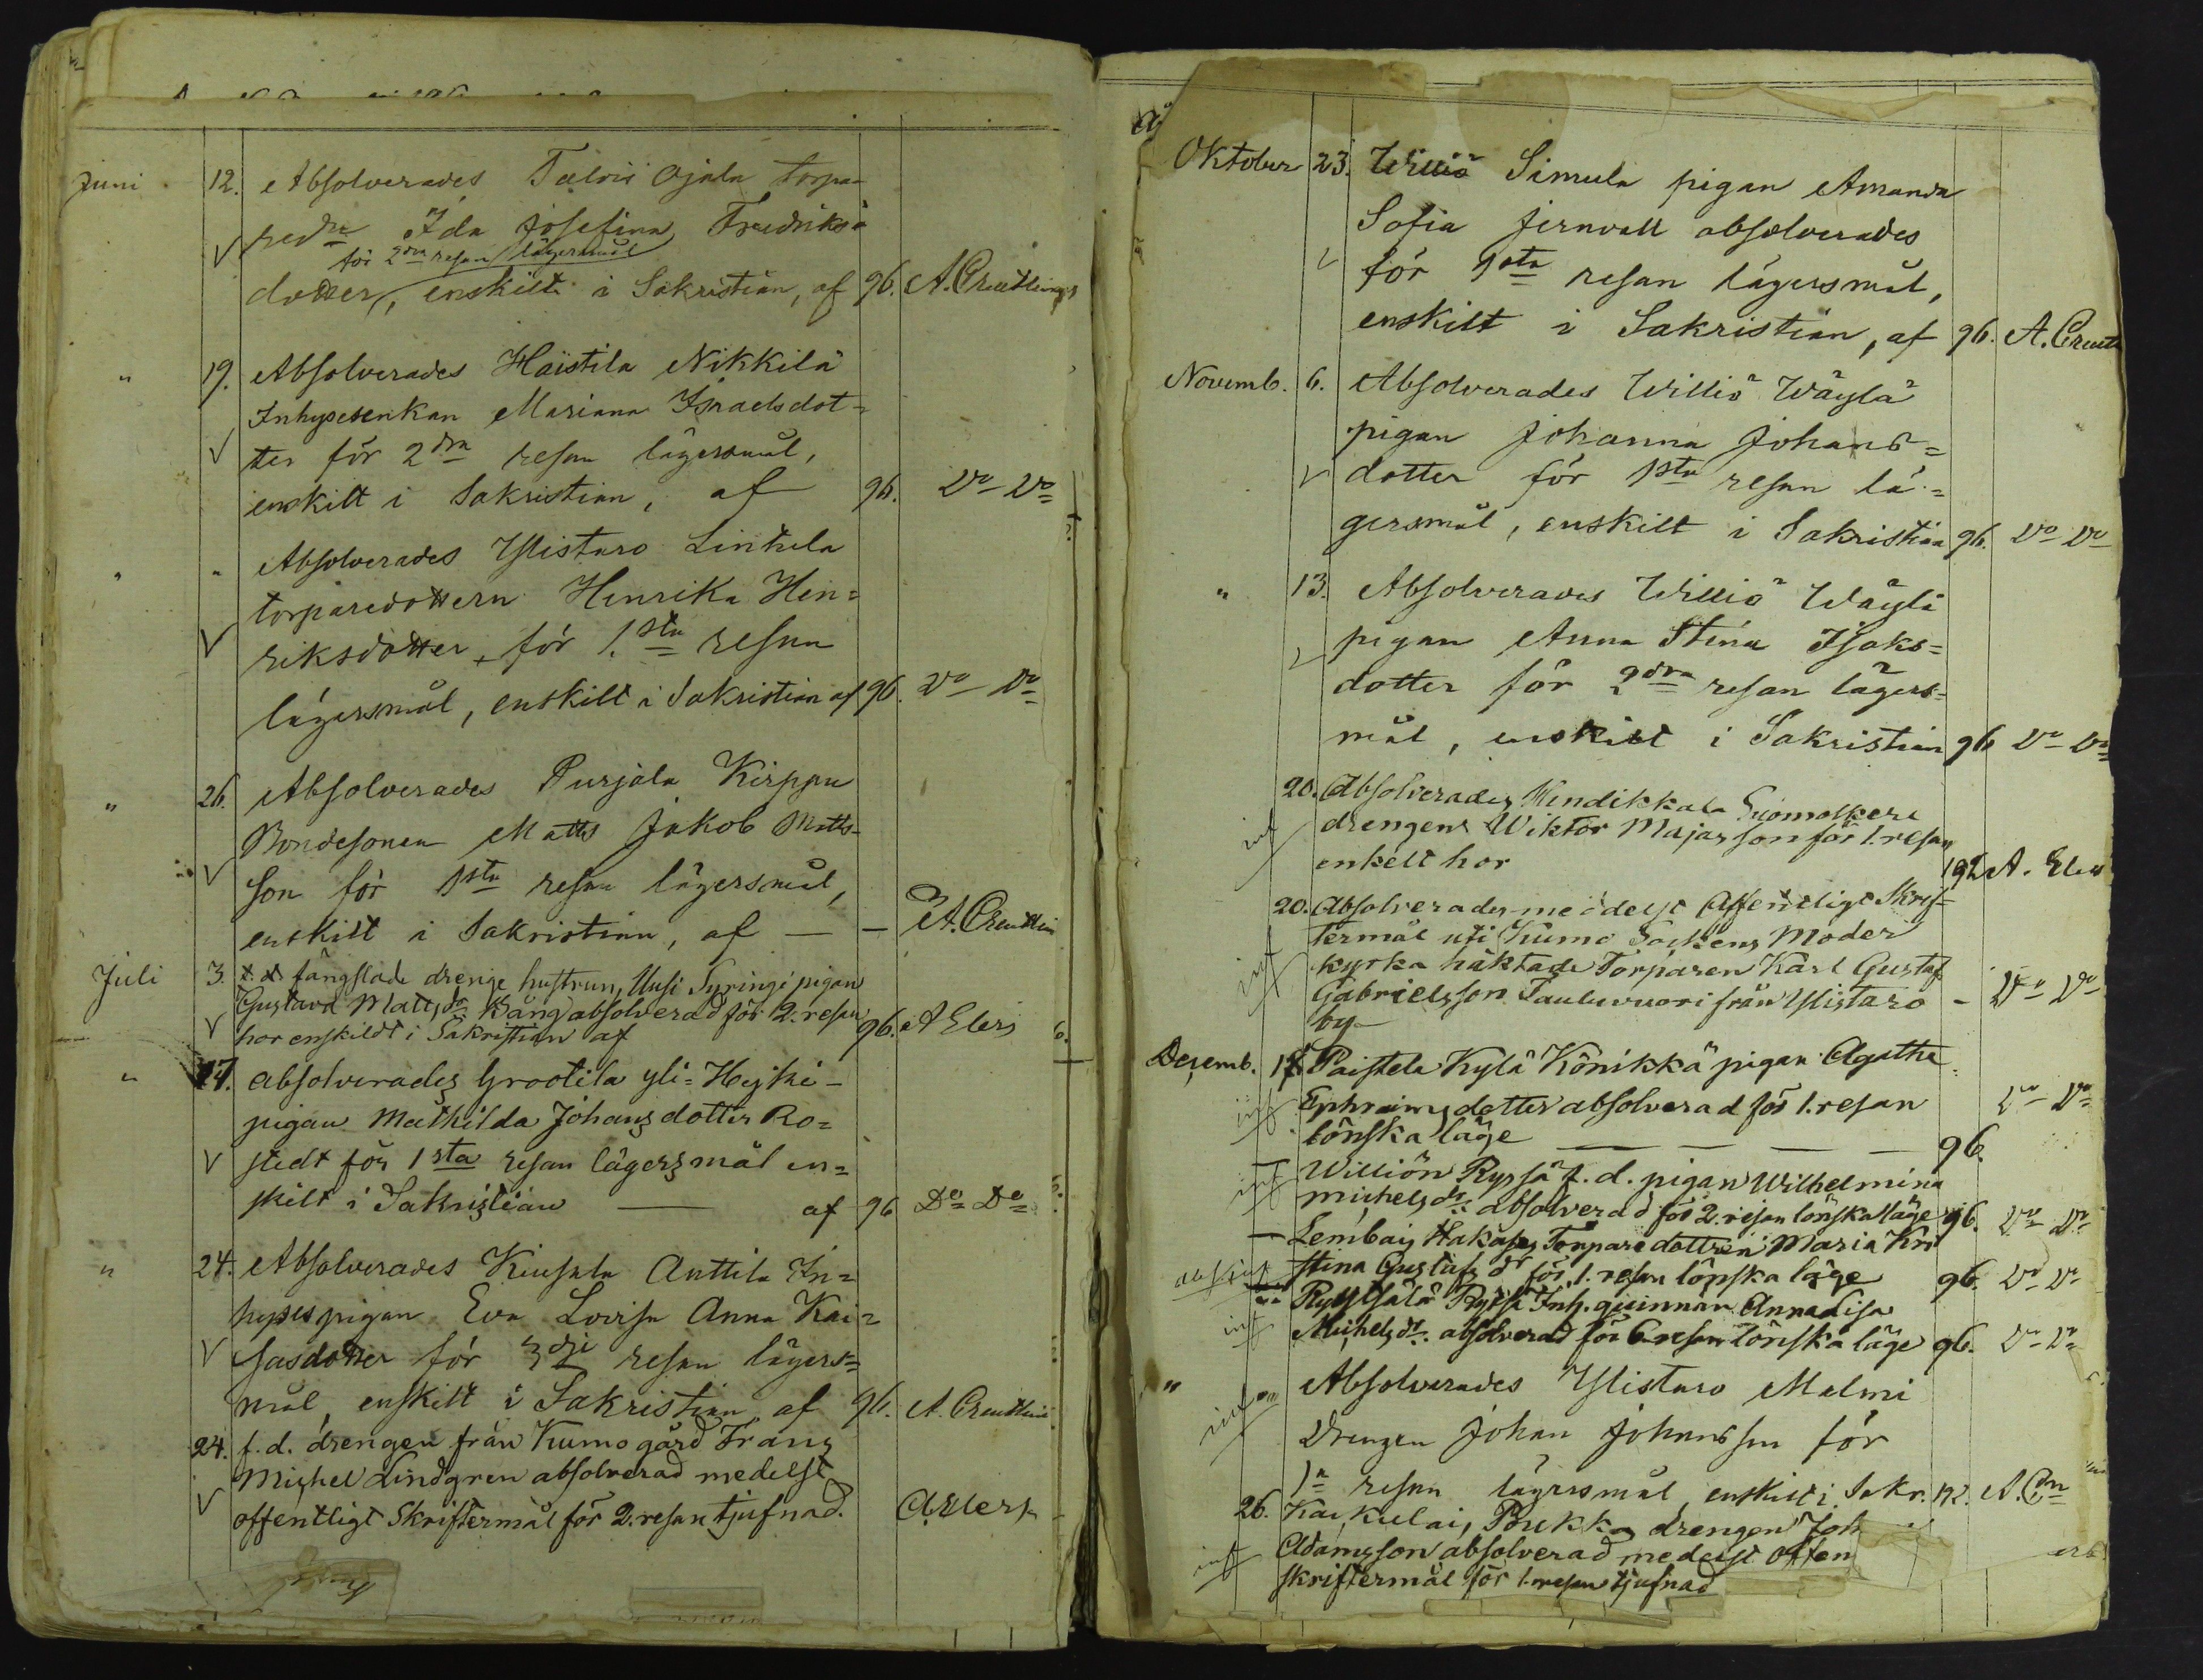 Juni 12. Absolverades Talvii Ojala torpa-
redr Ida Josefina Fredriks-
för 2dra resan lägersmål
dotter, enskilt i Sakristian, af 96. A. Creutlein
" 19. Absolverades Haistila Nikkilä
Inhysesenkan Mariana Israelsdot=
ter för 2dra resan lägersmål,
enskilt i Sakristian, af 96. Do Do
" " Absolverades Ylistaro Linkula
torparedottern Henrika Hen=
riksdotter, för 1sta resan
lägersmål, enskilt i Sakristian af 96. Do Do
" 26. Absolverades Purjala Kirppu
Bondesonen Matts Jakob Matts-
son för 1sta resan lägersmål,
enskilt i Sakristian, af — — A. Creutlein
Juli 3. fängslade drenge hustrun, Uusi Syringi pigan
Gustava Mattsdr Käng absolverad för 2. resan
hor enskildt i Sakristian af 96. A Elers
" 17. absolverades Grootila yli=Heiki-
pigan Mathilda Johansdotter Ro=
stedt för 1sta resan lägersmål en=
skilt i Sakristian — af 96 Do Do
" 24. Absolverades Kiusala Anttila In=
hysespigan Eva Lovisa Anna Kai=
sasdotter för 3dje resan lägers=
mål, enskilt i Sakristian af 96. A. Creutlein
24. f.d. drengen från Kumo gård Frans
Michel Lindgren absolverad medelst
offentligt Skriftermål för 2. resan tjufnad. A Elers
Oktober 23. Williö Simula pigan Amanda
Sofia Jernvall absolverades
för 1sta resan lägersmål,
enskilt i Sakristian, af 96. A. Creutl
Novemb. 6. Absolverades Williö Wäylä
pigan Johanna Johans=
dotter för 1sta resan lä=
gersmål, enskilt i Sakristian 96. Do Do
" 13. Absolverades Williö Wäylä
pigan Anna Stina Isaks=
dotter för 2dra resan lägers=
mål, enskilt i Sakristian 96 Do Do
20. Absolverades Kindikkala Suomalkere
drengens Wiktor Majasson för 1. resan
inf enkelt hor 192 A. Elers
20. Absolverades medelst Offentligt Skrif=
termål uti Kumo Sockens Moder
inf kyrka häktade Torparen Karl Gustaf
Gabrielsson Tauluvuori från Ylistaro — Do Do
by
Decemb. 18 Paistela Kylä Könikkä pigan Agatha
inf Ephraimsdotter absolverad för 1. resan Do Do
lönska läge — — — — 96.
— Williön Ryssä f.d. pigan Wilhelmina
inf Michelsdr absolverad för 2. resan lönskaläge 96. Do Do
— Lembais Hakases Torpare dottren Maria Kri
stina Gustafsdr för 1. resan lönska läge 96. Do Do
Ryssälä Ryssä Inh. quinnan Annalisa
inf Michelsdr absolverad för 6 resan lönska läge 96. Do Do
" Absolverades Ylistaro Malmi
Drengen Johan Johansson för
1a resan lägersmål, enskilt i Sakr. 192. A. Cn
26. Kai, Kulai, Pukka drengen Joh
inf Adamsson absolverad medelst offen
skriftermål för 1. resan tjufnad